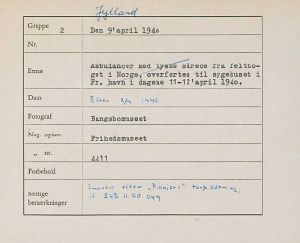 Jylland
Gruppe 2 Den 9' april 1940
Nr.
Emne Ambulancer med tyske sårede fra feltto-
get i Norge, overføres til sygehuset i
Fr. havn i dagene 11-12' april 1940.
Dato Efter 9/4 1940
Fotograf Bangsbomuseet
Neg. ophav. Frihedsmuseet
„ nr. 4411
Forbehold
Særlige
bemærkninger efter "Pionier's" torpedering,